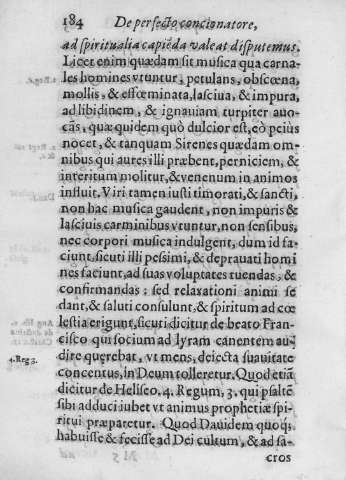 184 De perfecto concionatore,
ad spiritualia capiẽda valeat disputemus.
Licet enim quædam sit musica qua carna-
les homines vtuntur, petulans, obscœna,
mollis, & effœminata, lasciua, & impura,
ad libidinem, & ignauiam turpiter auo-
cãs, quæ quidem quò dulcior est, eò peius
nocet, & tanquam Sirenes quædam om-
nibus qui aures illi præbent, perniciem, &
interitum molitur, & venenum in animos
influit. Viri tamen iusti timorati, & sancti,
non hac musica gaudent, non impuris &
lasciuis carminibus vtuntur, non sensibus,
nec corpori musica indulgent, dum id fa-
ciunt, sicuti illi pessimi, & deprauati homi
nes faciunt, ad suas voluptates tuendas, &
confirmandas : sed relaxationi animi se
dant, & saluti consulunt, & spiritum ad cœ
lestia erigunt, sicuti dicitur de beato Fran-
cisco qui socium ad lyram canentem au-
4. Reg 3. dire querebat, vt mens, deiecta suauitate
concentus, in Deum tolleretur. Quod etiã
dicitur de Heliseo. 4. Regum, 3. qui psaltẽ
sibi adduci iubet vt animus prophetiæ spi-
ritui præparetur. Quod Dauidem quoq;
habuisse & fecisse ad Dei cultum, & ad sa-
cros